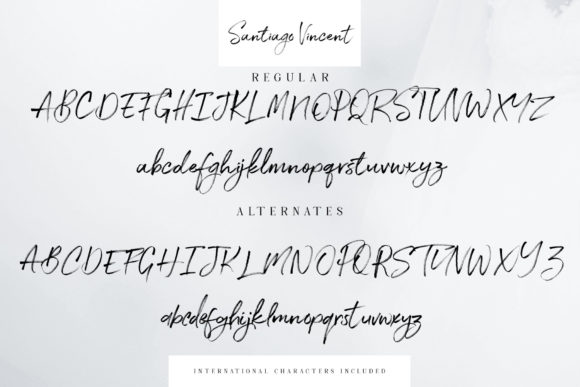 Santiago Vincent
REGULAR
ABCDEFGHIJKLMNOPQRSTUVWXYZ
abcdefghijklmnopqrstuvwxyz
ALTERNATES
ABCDEFGHIJKLMNOPQRSTUVWXYZ
abcdefghijklmnopqrstuvwxyz
INTERNATIONAL CHARACTERS INCLUDED